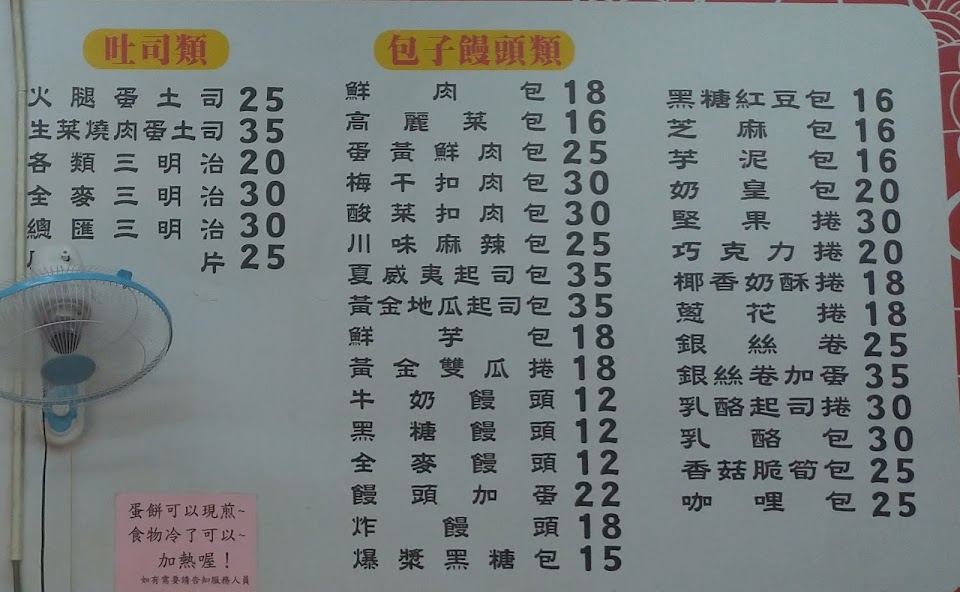 吐司類
火腿蛋土司 25
生菜燒肉蛋土司 35
各類三明治 20
全麥三明治 30
總匯三明治 30
片 25
包子饅頭類
鮮肉包 18
高麗菜包 16
蛋黃鮮肉包 25
梅干扣肉包 30
酸菜扣肉包 30
川味麻辣包 25
夏威夷起司包 35
黃金地瓜起司包 35
鮮芋包 18
黃金雙瓜捲 18
牛奶饅頭 12
黑糖饅頭 12
全麥饅頭 12
饅頭加蛋 22
炸饅頭 18
爆漿黑糖包 15
黑糖紅豆包 16
芝麻包 16
芋泥包 16
奶皇包 20
堅果捲 30
巧克力捲 20
椰香奶酥捲 18
蔥花捲 18
銀絲卷 25
銀絲卷加蛋 35
乳酪起司捲 30
乳酪包 30
香菇脆筍包 25
咖哩包 25
蛋餅可以現煎~
食物冷了可以~
加熱喔！
如有需要請告知服務人員